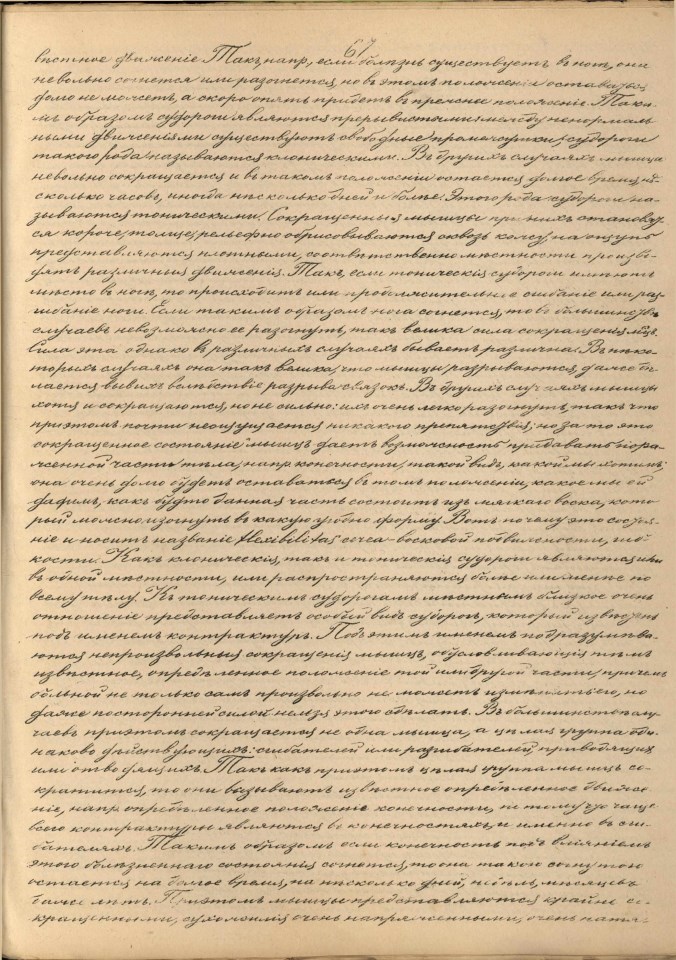 67
вѣстное движеніе. Такъ, напр., если болѣзнь существуетъ въ ногѣ, она
невольно согнется или разогнется, но въ этомъ положеніи оставаться
долго не можетъ, а скоро опять придетъ въ прежнее положеніе. Таки-
мъ образомъ судороги являются прерывистыми: между ненормаль-
ными движеніями существуютъ свободные промежутки; судороги
такого рода называются клоническими. Въ другихъ случаяхъ мышца
невольно сокращается и въ такомъ положеніи остается долгое время, нѣ-
сколько часовъ, иногда нѣсколько дней и болѣе. Этого рода судороги на-
зываются тоническими. Сокращенныя мышцы при нихъ становят-
ся короче, толще, рельефно обрисовываются сквозь кожу, на ощупь
представляются плотными, соотвѣтственно мѣстности произво-
дятъ различныя движенія. Такъ, если тоническія судороги имѣютъ
мѣсто въ ногѣ, то происходитъ или продолжительное сгибаніе или раз-
гибаніе ноги. Если такимъ образомъ нога согнется, то въ большинствѣ
случаевъ невозможно ее разогнуть, такъ велика сила сокращенія мышцъ.
Сила эта однако въ различныхъ случаяхъ бываетъ различна. Въ нѣко-
торыхъ случаяхъ она такъ велика, что мышцы разрываются, даже дѣ-
лается вывихъ вслѣдствіе разрыва связокъ. Въ другихъ случаяхъ мышцы
хотя и сокращаются, но не сильно: ихъ очень легко разогнуть, такъ что
при этомъ почти не ощущается никакого препятствія; но за то это
сокращенное состояніе мышцъ даетъ возможность придавать пора-
женной части тѣла, напр. конечности, такой видъ, какой мы хотимъ;
она очень долго будетъ оставаться въ томъ положеніи, какое мы ей
дадимъ, какъ будто данная часть состоитъ изъ мягкаго воска, кото-
рый можно изогнуть въ какую угодно форму. Вотъ почему это состоя-
ніе и носитъ названіе flexibilitas cerea - восковой подвижности, гиб-
кости. Какъ клоническія, такъ и тоническія судороги являются или
въ одной мѣстности, или распространяются болѣе или менѣе по
всему тѣлу. Къ тоническимъ судорогамъ мѣстнымъ близкое очень
отношеніе представляетъ особый видъ судорогъ, который извѣстенъ
подъ именемъ контрактуръ. Подъ этимъ именемъ подразумѣва-
ются непроизвольныя сокращенія мышцъ, обусловливающія тѣмъ
извѣстное, опредѣленное положеніе той или другой части, причемъ
больной не только самъ произвольно не можетъ измѣнить его, но
даже посторонней силой нельзя этого сдѣлать. Въ большинствѣ слу-
чаевъ при этомъ сокращается не одна мышца, а цѣлая группа оди-
наково дѣйствующихъ: сгибателей или разгибателей, приводящихъ
или отводящихъ. Такъ какъ при этомъ цѣлая группа мышцъ со-
кратится, то они вызываютъ извѣстное опредѣленное движе-
ніе, напр. опредѣленное положеніе конечности, потому что чаще
всего контрактуры являются въ конечностяхъ и именно въ сги-
бателяхъ. Такимъ образомъ если конечность подъ вліяніемъ
этого болѣзненнаго состоянія согнется, то она такою согнутою
остается на долгое время, на нѣсколько дней, недѣль, мѣсяцевъ
даже лѣтъ. При этомъ мышцы представляются крайне со-
кращенными, сухожилія очень напряженными, очень натя-